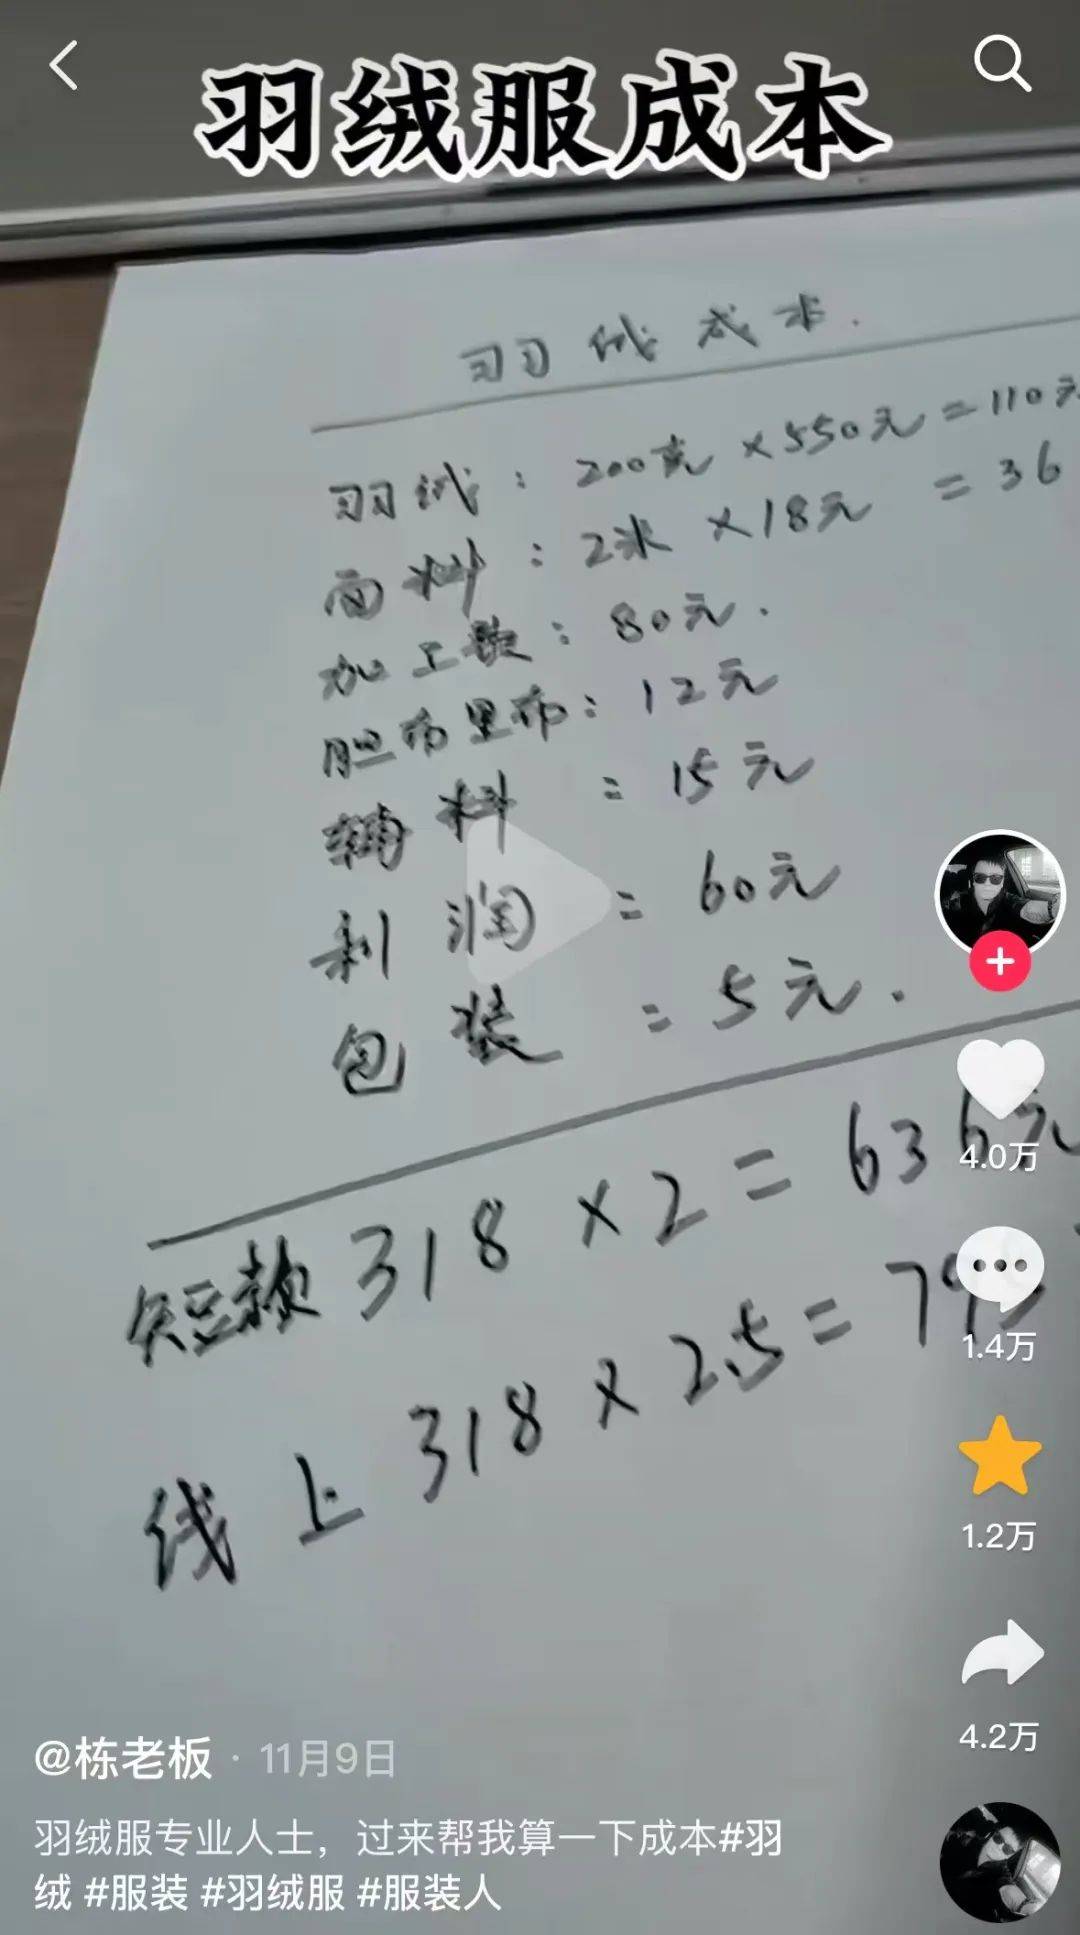 羽绒服成本
羽绒成本.
羽绒：200克×550元=110元
面料：2米×18元 =36
加工款：80元.
胆布里布：12元
辅料：15元
利润：60元
包装：5元.
短款318×2=636元
线上318×2.5=795
4.0万
1.4万
1.2万
4.2万
@栋老板 · 11月9日
羽绒服专业人士，过来帮我算一下成本#羽
绒 #服装 #羽绒服 #服装人